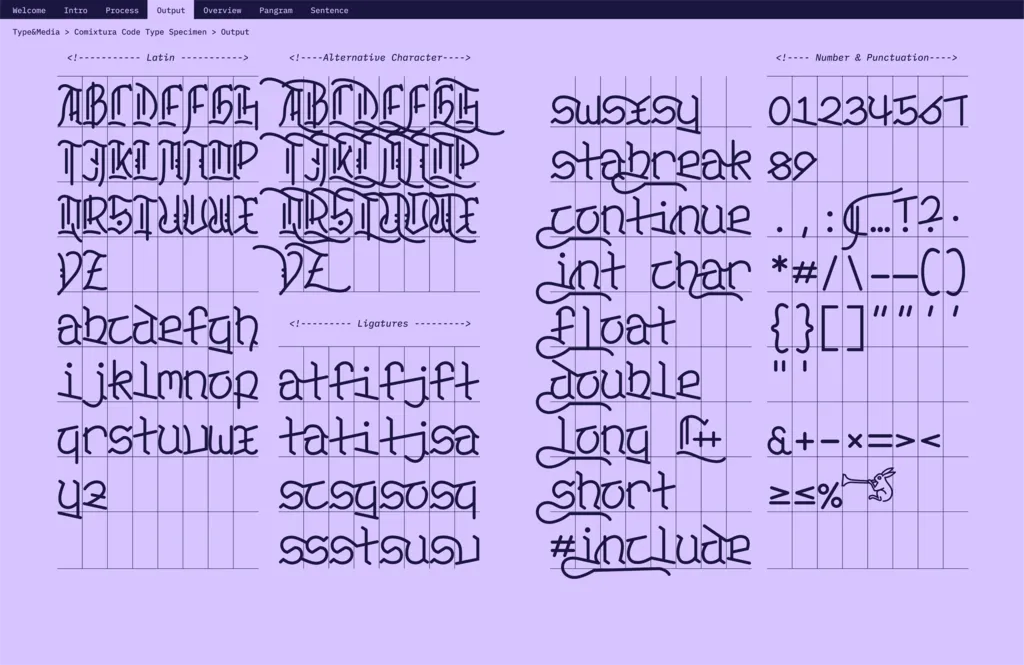 Welcome Intro Process Output Overview Pangram Sentence
Type&Media > Comixtura Code Type Specimen > Output
<!----------- Latin ----------->
ABCDEFGH
IJKLMNOP
QRSTUVWX
YZ
abcdefgh
ijklmnop
qrstuvwx
yz
<!----Alternative Character---->
ABCDEFGH
IJKLMNOP
QRSTUVWX
YZ
<!--------- Ligatures --------->
atfifjft
tatitjsa
scsgsosq
ssstsusv
swsxsy
stabreak
continue
int char
float
double
long C++
short
#include
<!---- Number & Punctuation---->
01234567
89
*#/\–—()
{}[]
&+−×=><
≥≤%